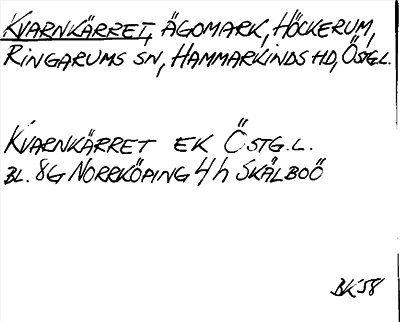 KVARNKÄRRET, ÄGOMARK, HÖCKERUM,
RINGARUMS SN, HAMMARKINDS HD, ÖSTG.L.
KVARNKÄRRET EK ÖSTG.L.
BL. 8G NORRKÖPING 4h SKÄLBOÖ
BK58